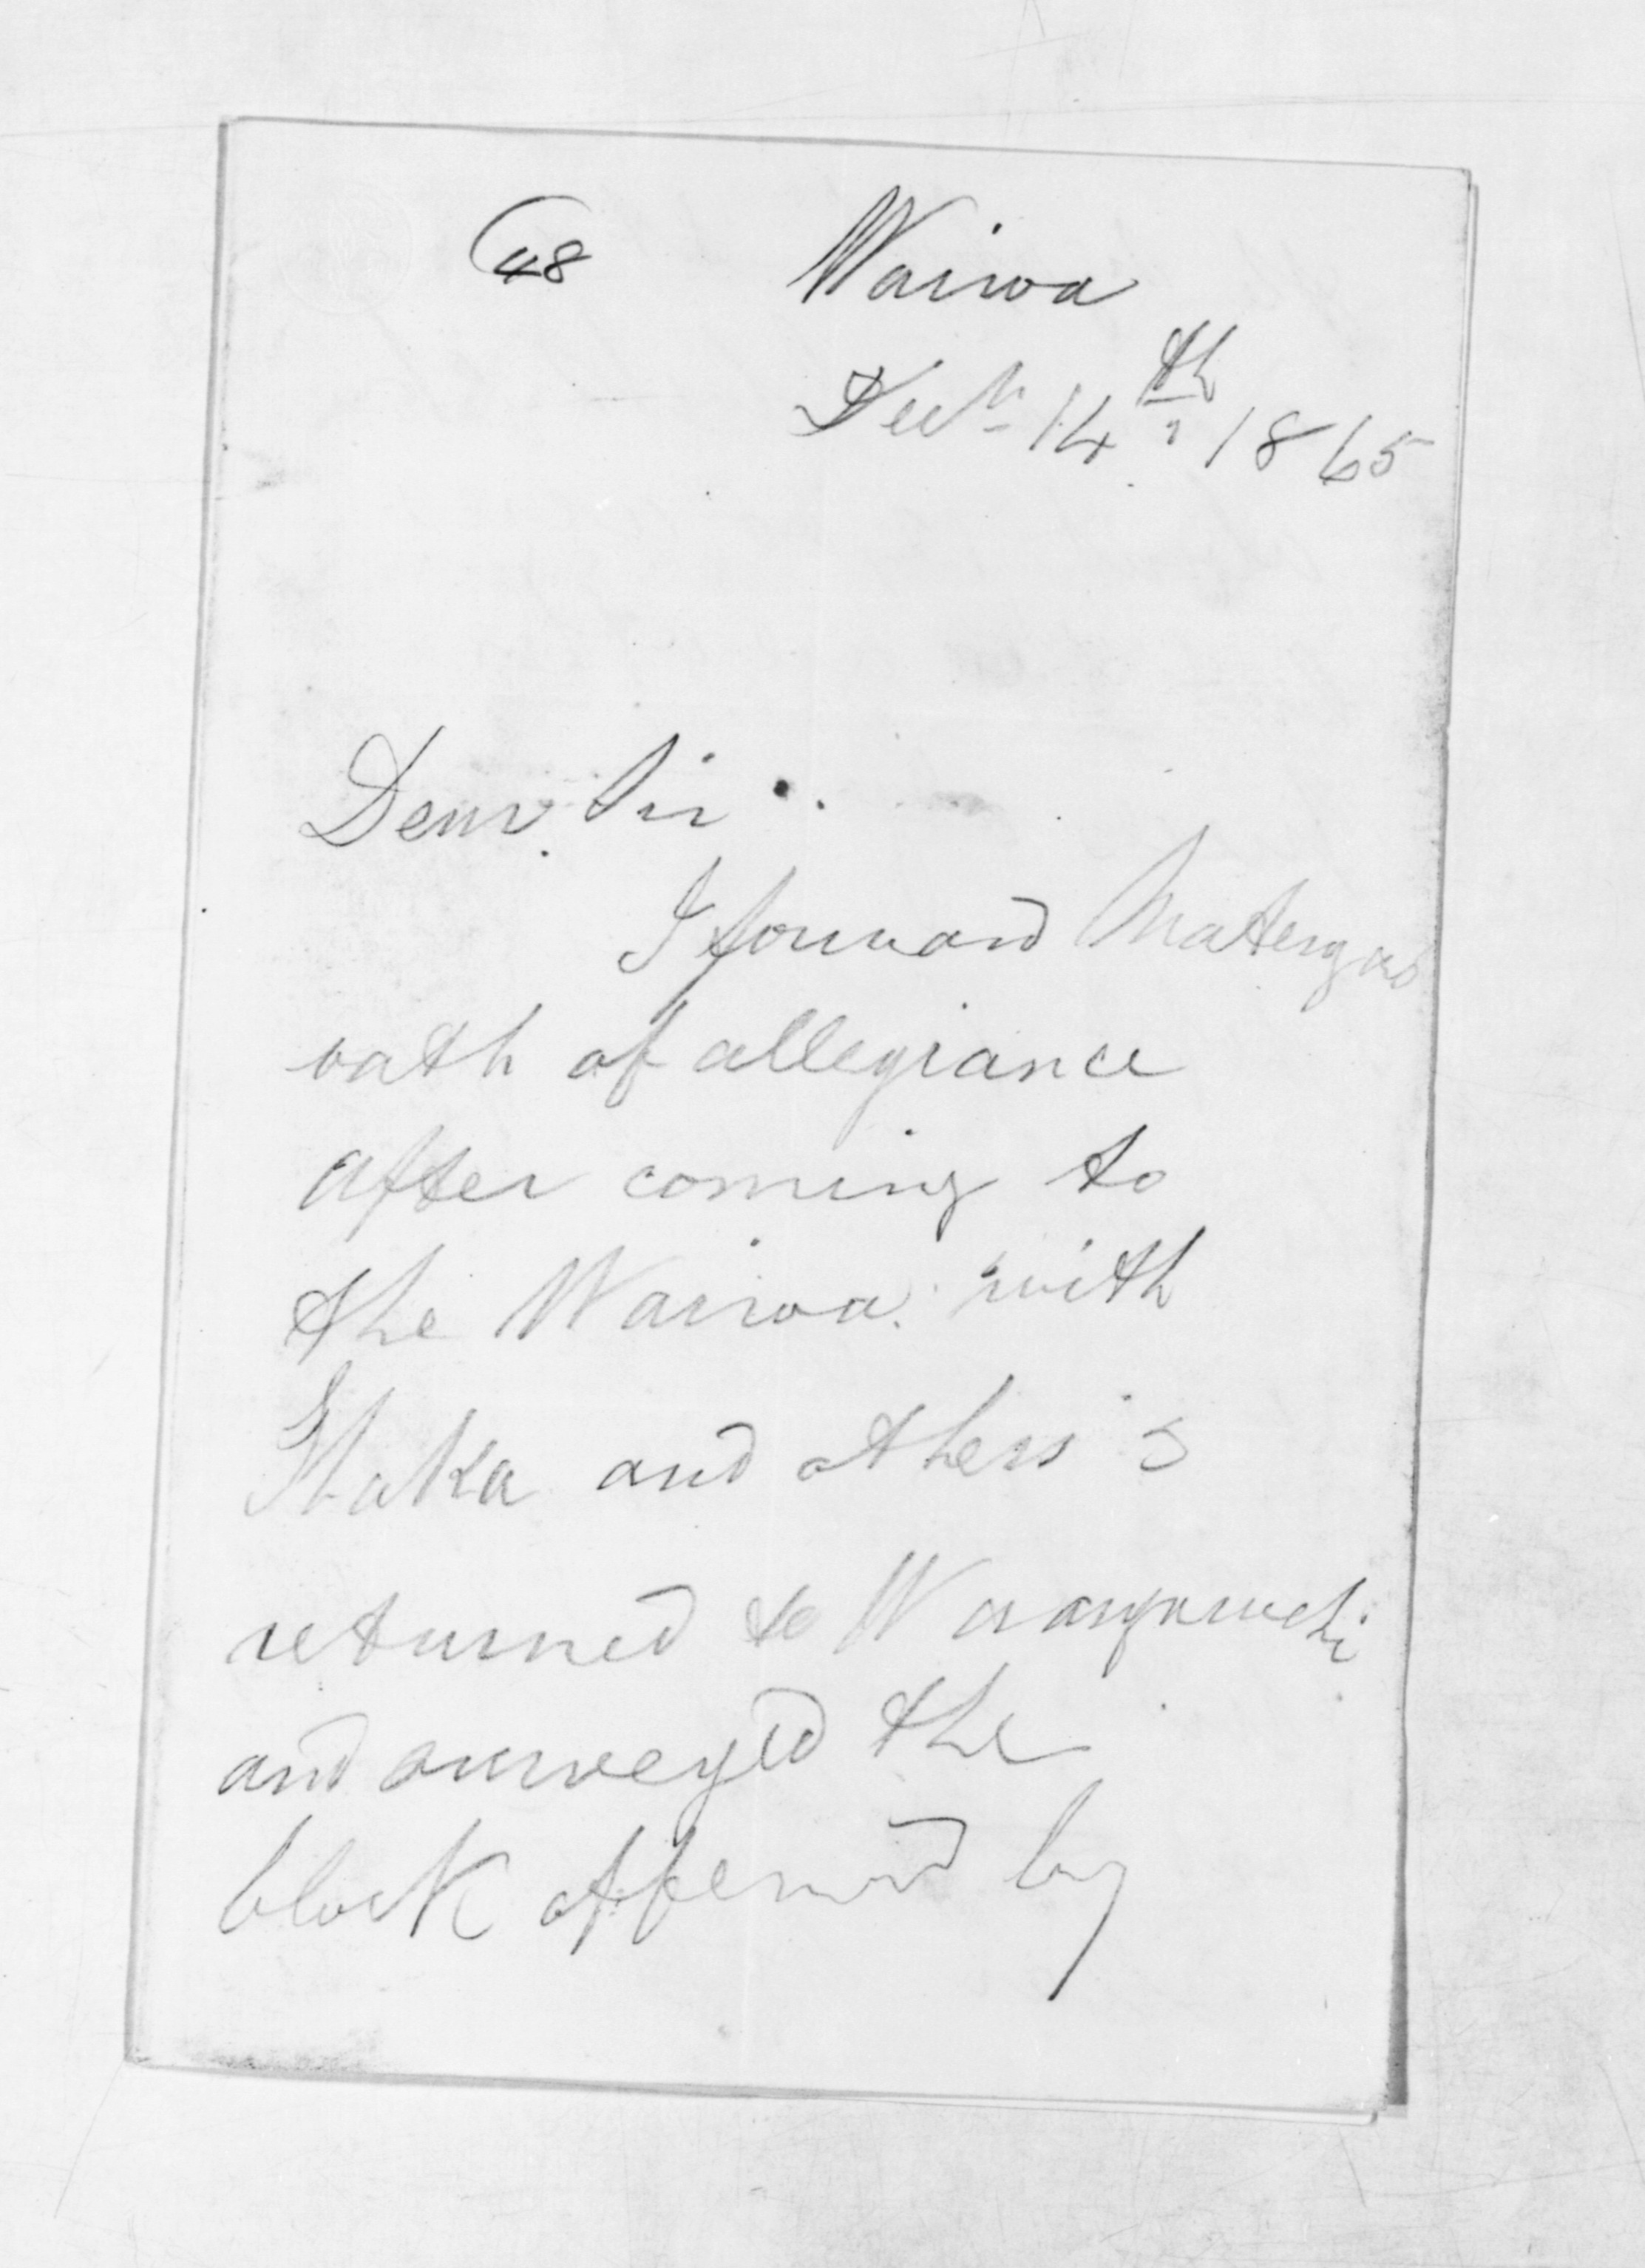 48
Wairoa
Decr 14th, 1865
Dear Sir
I forward Matengas
oath of allegiance
after coming to
the Wairoa with
Ihaka and others
returned to
and surveyed the
block offered by